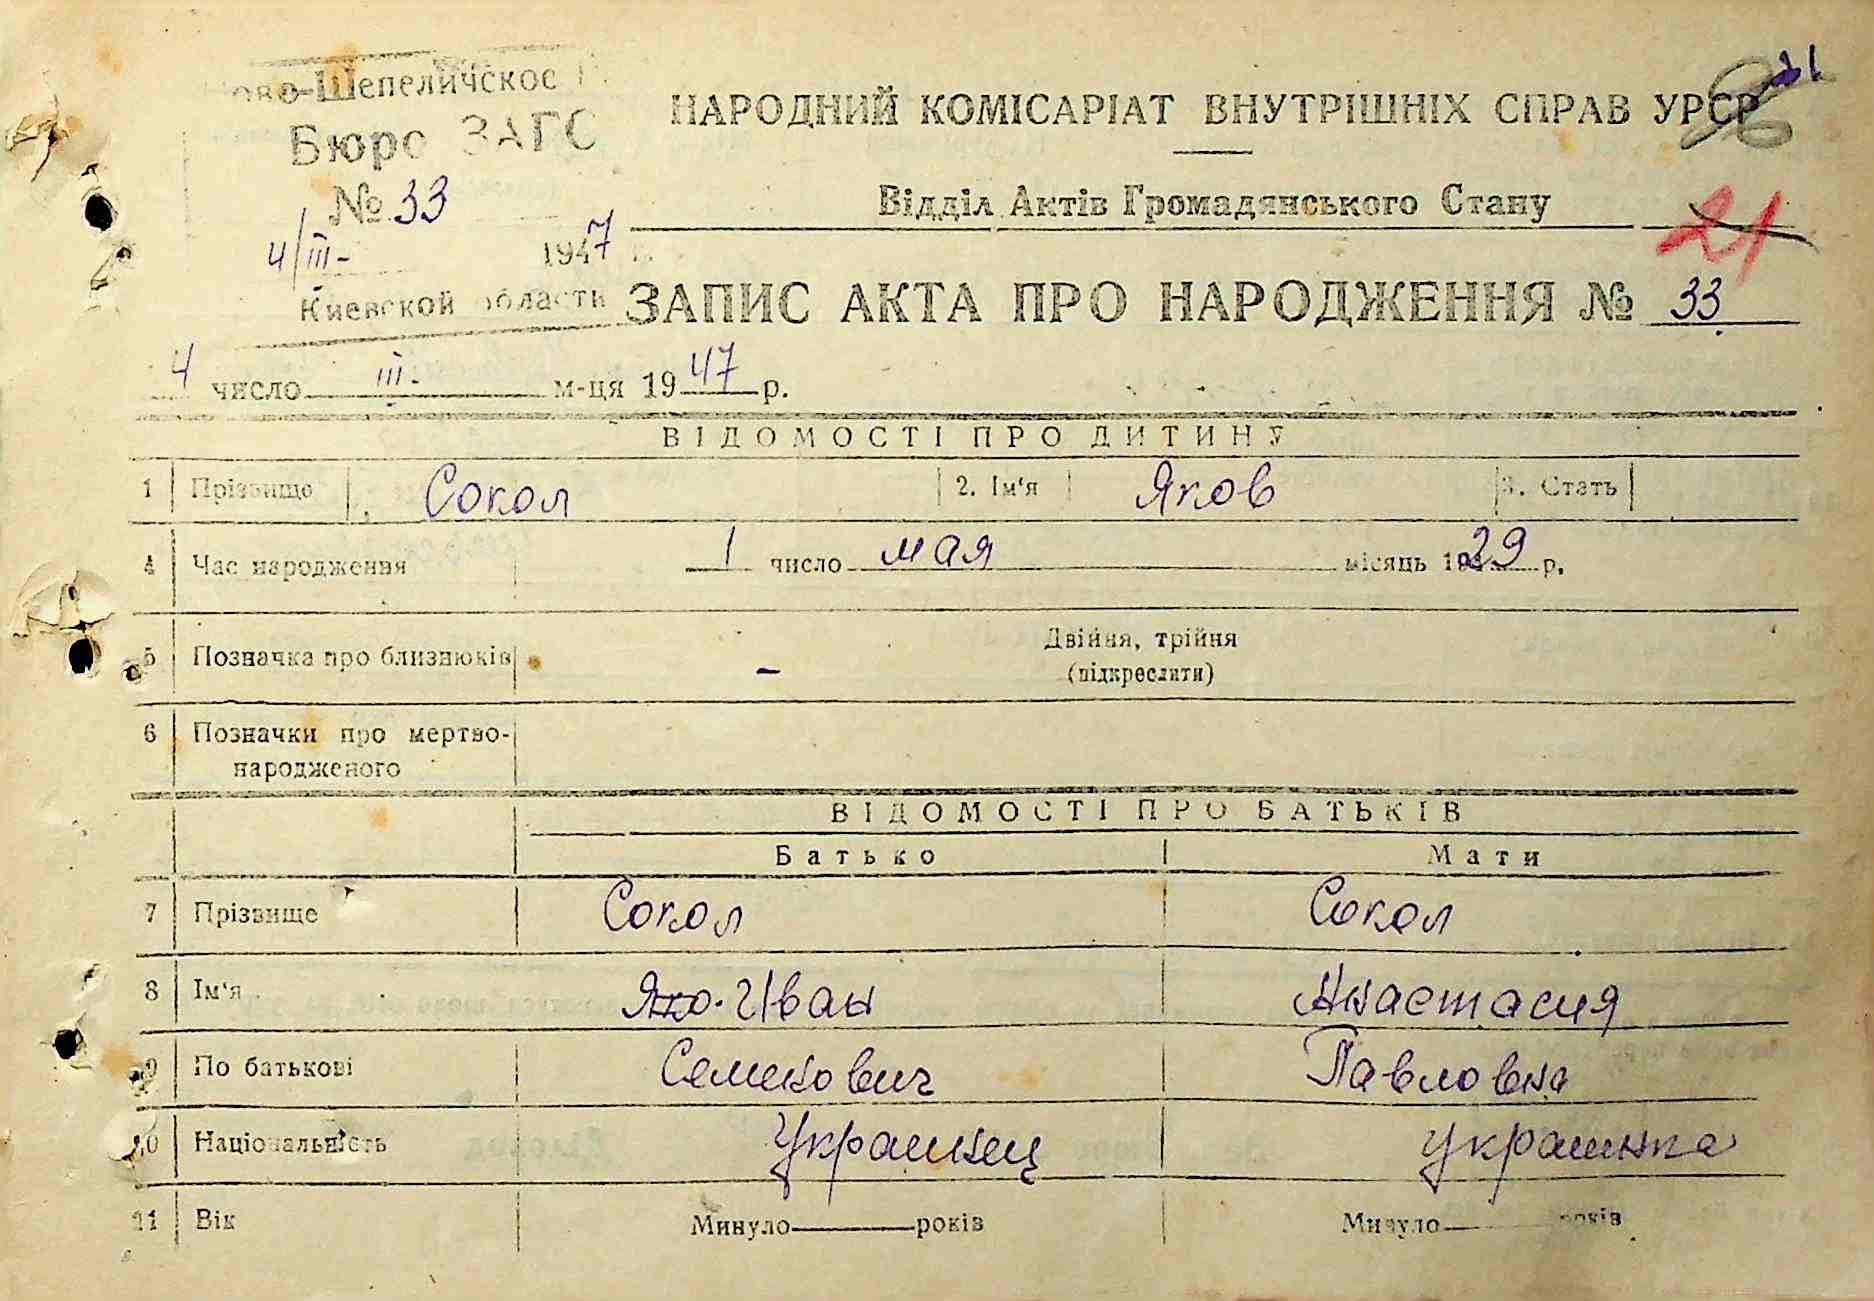 Ново-Шепеличское
Бюро ЗАГС
№ 33
4/III- 1947 г.
Киевской области
21
НАРОДНИЙ КОМІСАРІАТ ВНУТРІШНІХ СПРАВ УРСР
Відділ Актів Громадянського Стану
21
ЗАПИС АКТА ПРО НАРОДЖЕННЯ № 33
4 число III- м-ця 1947 р.
ВІДОМОСТІ ПРО ДИТИНУ
1 Прізвище Сокол 2. Ім'я Яков 3. Стать
4 Час народження 1 число мая місяць 1929 р.
5 Позначка про близнюків - Двійня, трійня
(підкреслити)
6 Позначки про мертво-
народженого
ВІДОМОСТІ ПРО БАТЬКІВ
Батько Мати
7 Прізвище Сокол Сокол
8 Ім'я Яко. Иван Анастасия
9 По батькові Семенович Павловна
10 Національність Украинец украинка
11 Вік Минуло років Минуло років